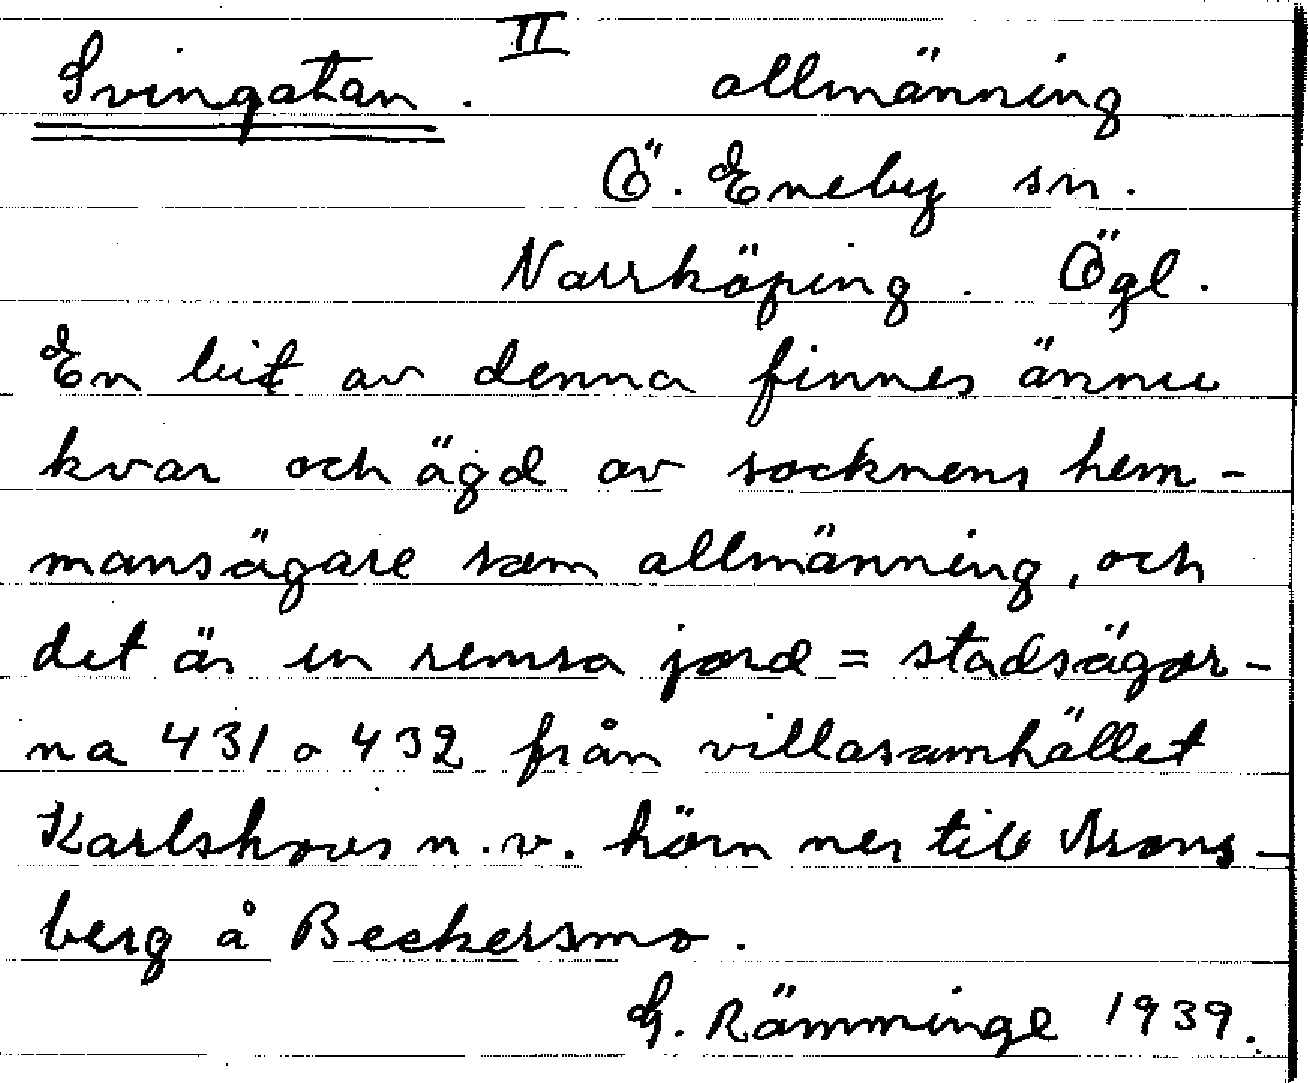 II
Svingatan. allmänning
Ö. Eneby sn.
Norrköping. Ögl.
En bit av denna finnes ännu
kvar och ägd av socknens hem-
mansägare som allmänning, och
det är en remsa jord = stadsägor-
na 431 o 432 från villasamhället
Karlshovs n.v. hörn ner till
berg å Beckersmo.
G. Rämminge 1939.